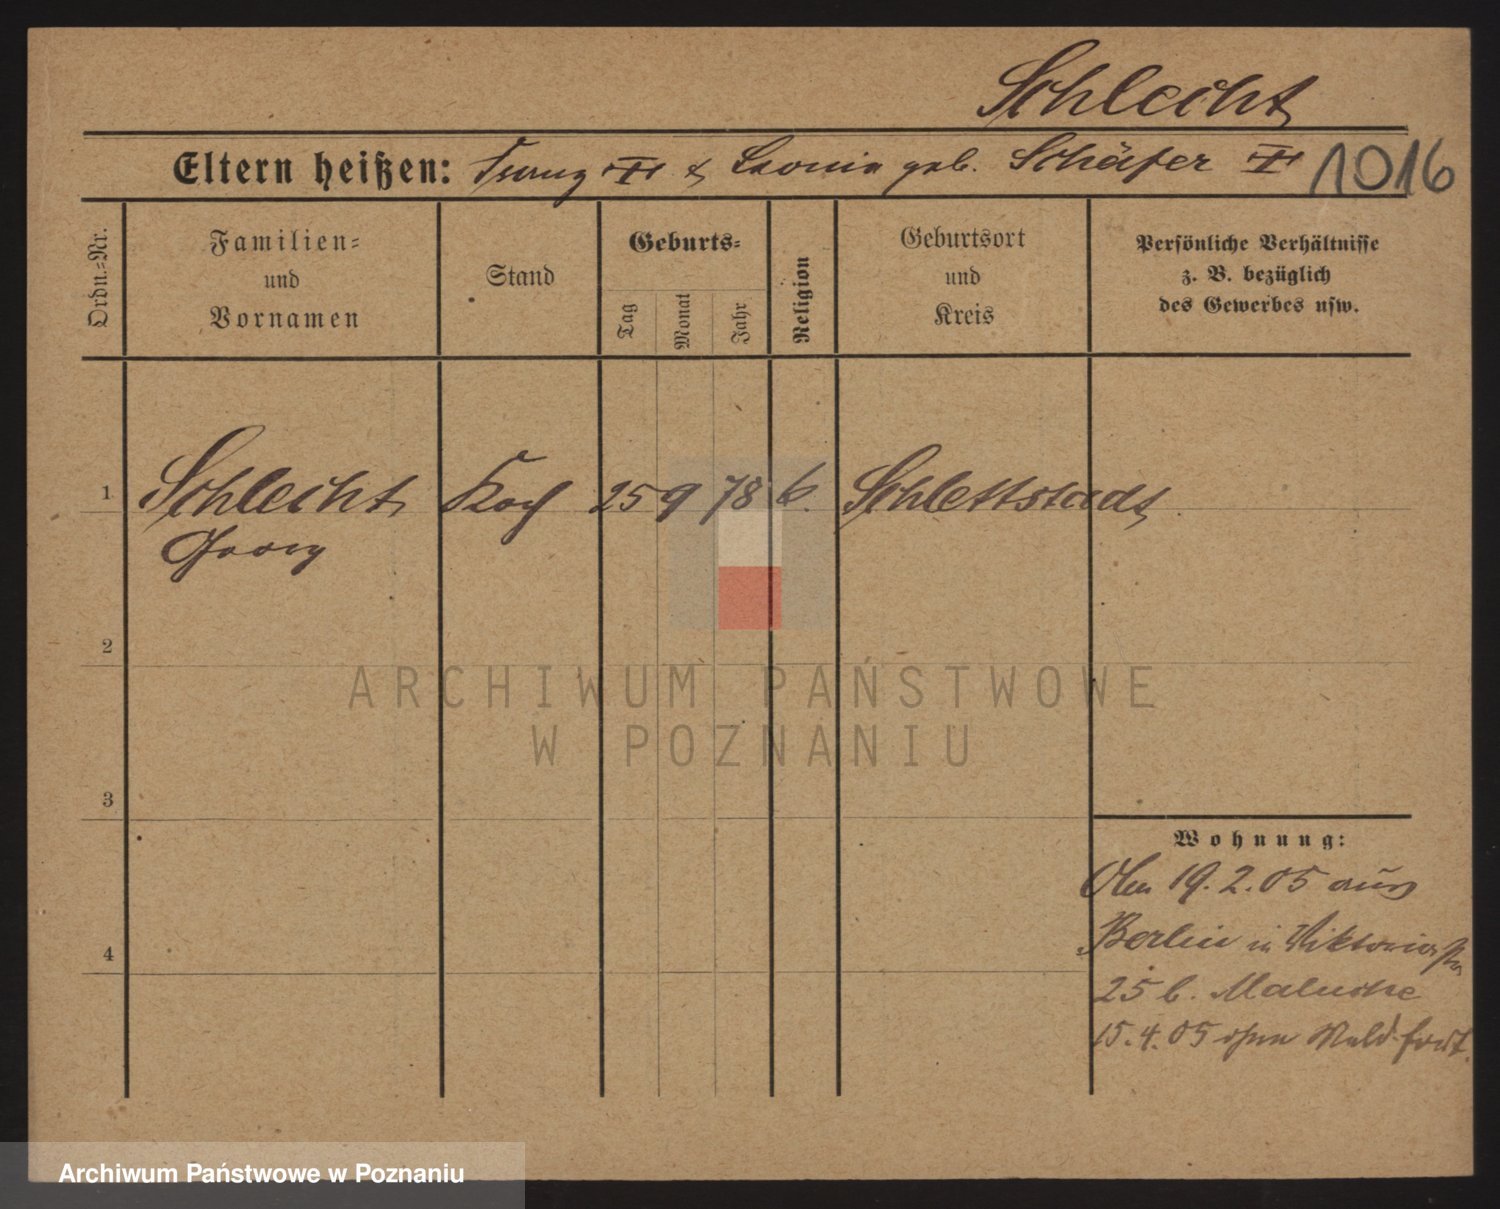 Schlecht
Eltern heißen: Franz & Leonie geb. Schäfer 1016
Ordn.=Nr.
Familien=
und
Vornamen
Stand
Geburts=
Tag
Monat
Jahr
Religion
Geburtsort
und
Kreis
Persönliche Verhältnisse
z. B. bezüglich
des Gewerbes usw.
1 Schlecht Koch 25 9 78 Schlettstadt
Georg
2
ARCHIWUM PAŃSTWOWE
W POZNANIU
3
Wohnung:
19.2.05 aus
Berlin in Viktoriastr
4
25 b. Maluske
15.4.05 ohne Meld. fort.
Archiwum Państwowe w Poznaniu